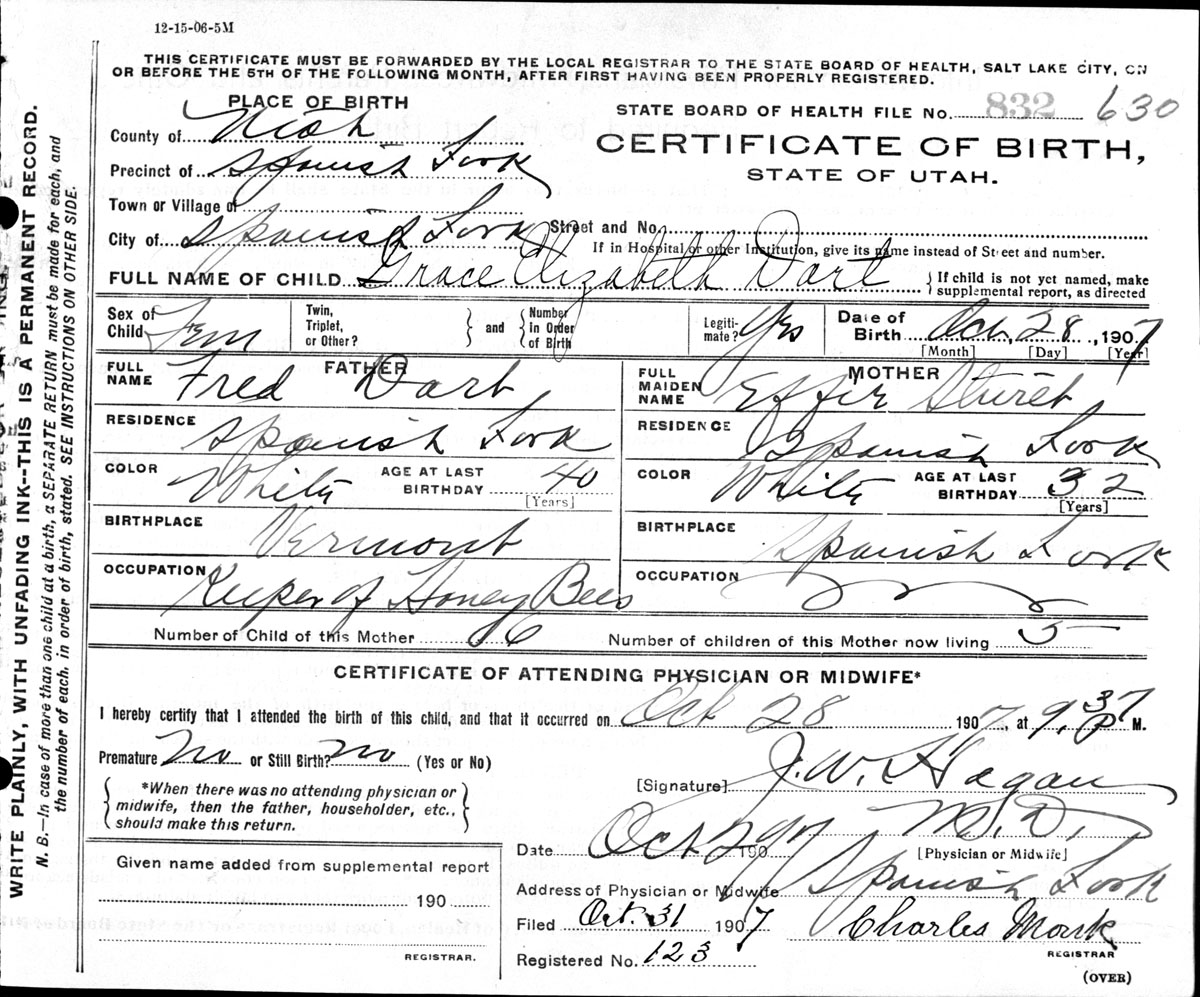 12-15-06-5M
THIS CERTIFICATE MUST BE FORWARDED BY THE LOCAL REGISTRAR TO THE STATE BOARD OF HEALTH, SALT LAKE CITY, ON
OR BEFORE THE 5TH OF THE FOLLOWING MONTH, AFTER FIRST HAVING BEEN PROPERLY REGISTERED.
PLACE OF BIRTH
STATE BOARD OF HEALTH FILE No. 832 630
County of Utah
CERTIFICATE OF BIRTH,
STATE OF UTAH.
Precinct of Spanish Fork
Town or Village of
City of Spanish Fork Street and No.
If in Hospital or other Institution, give its name instead of Street and number.
FULL NAME OF CHILD Grace Elizabeth Dart { If child is not yet named, make
supplemental report, as directed
Sex of Child Fem Twin, Triplet, or Other? } and { Number in Order of Birth Legiti-mate? Yes Date of Birth Oct, 28, 1907
[Month] [Day] [Year]
FATHER MOTHER
FULL NAME Fred Dart FULL MAIDEN NAME Effie
RESIDENCE Spanish Fork RESIDENCE Spanish Fork
COLOR White AGE AT LAST BIRTHDAY 40 [Years] COLOR White AGE AT LAST BIRTHDAY 32 [Years]
BIRTHPLACE Vermont BIRTHPLACE Spanish Fork
OCCUPATION Keeper of Honey Bees OCCUPATION
Number of Child of this Mother 6 Number of children of this Mother now living 5
CERTIFICATE OF ATTENDING PHYSICIAN OR MIDWIFE*
I hereby certify that I attended the birth of this child, and that it occurred on Oct 28 1907, at 9,37 P M.
Premature No or Still Birth? No (Yes or No)
[Signature] J. W. Hagan
M. D.
[Physician or Midwife]
{ *When there was no attending physician or
midwife, then the father, householder, etc.,
should make this return. }
Date Oct 29 1907
Given name added from supplemental report
190
REGISTRAR.
Address of Physician or Midwife Spanish Fork
Filed Oct. 31 1907 Charles Monk
REGISTRAR
Registered No. 123
(OVER)
WRITE PLAINLY, WITH UNFADING INK--THIS IS A PERMANENT RECORD.
N. B.—In case of more than one child at a birth, a SEPARATE RETURN must be made for each, and
the number of each, in order of birth, stated. SEE INSTRUCTIONS ON OTHER SIDE.